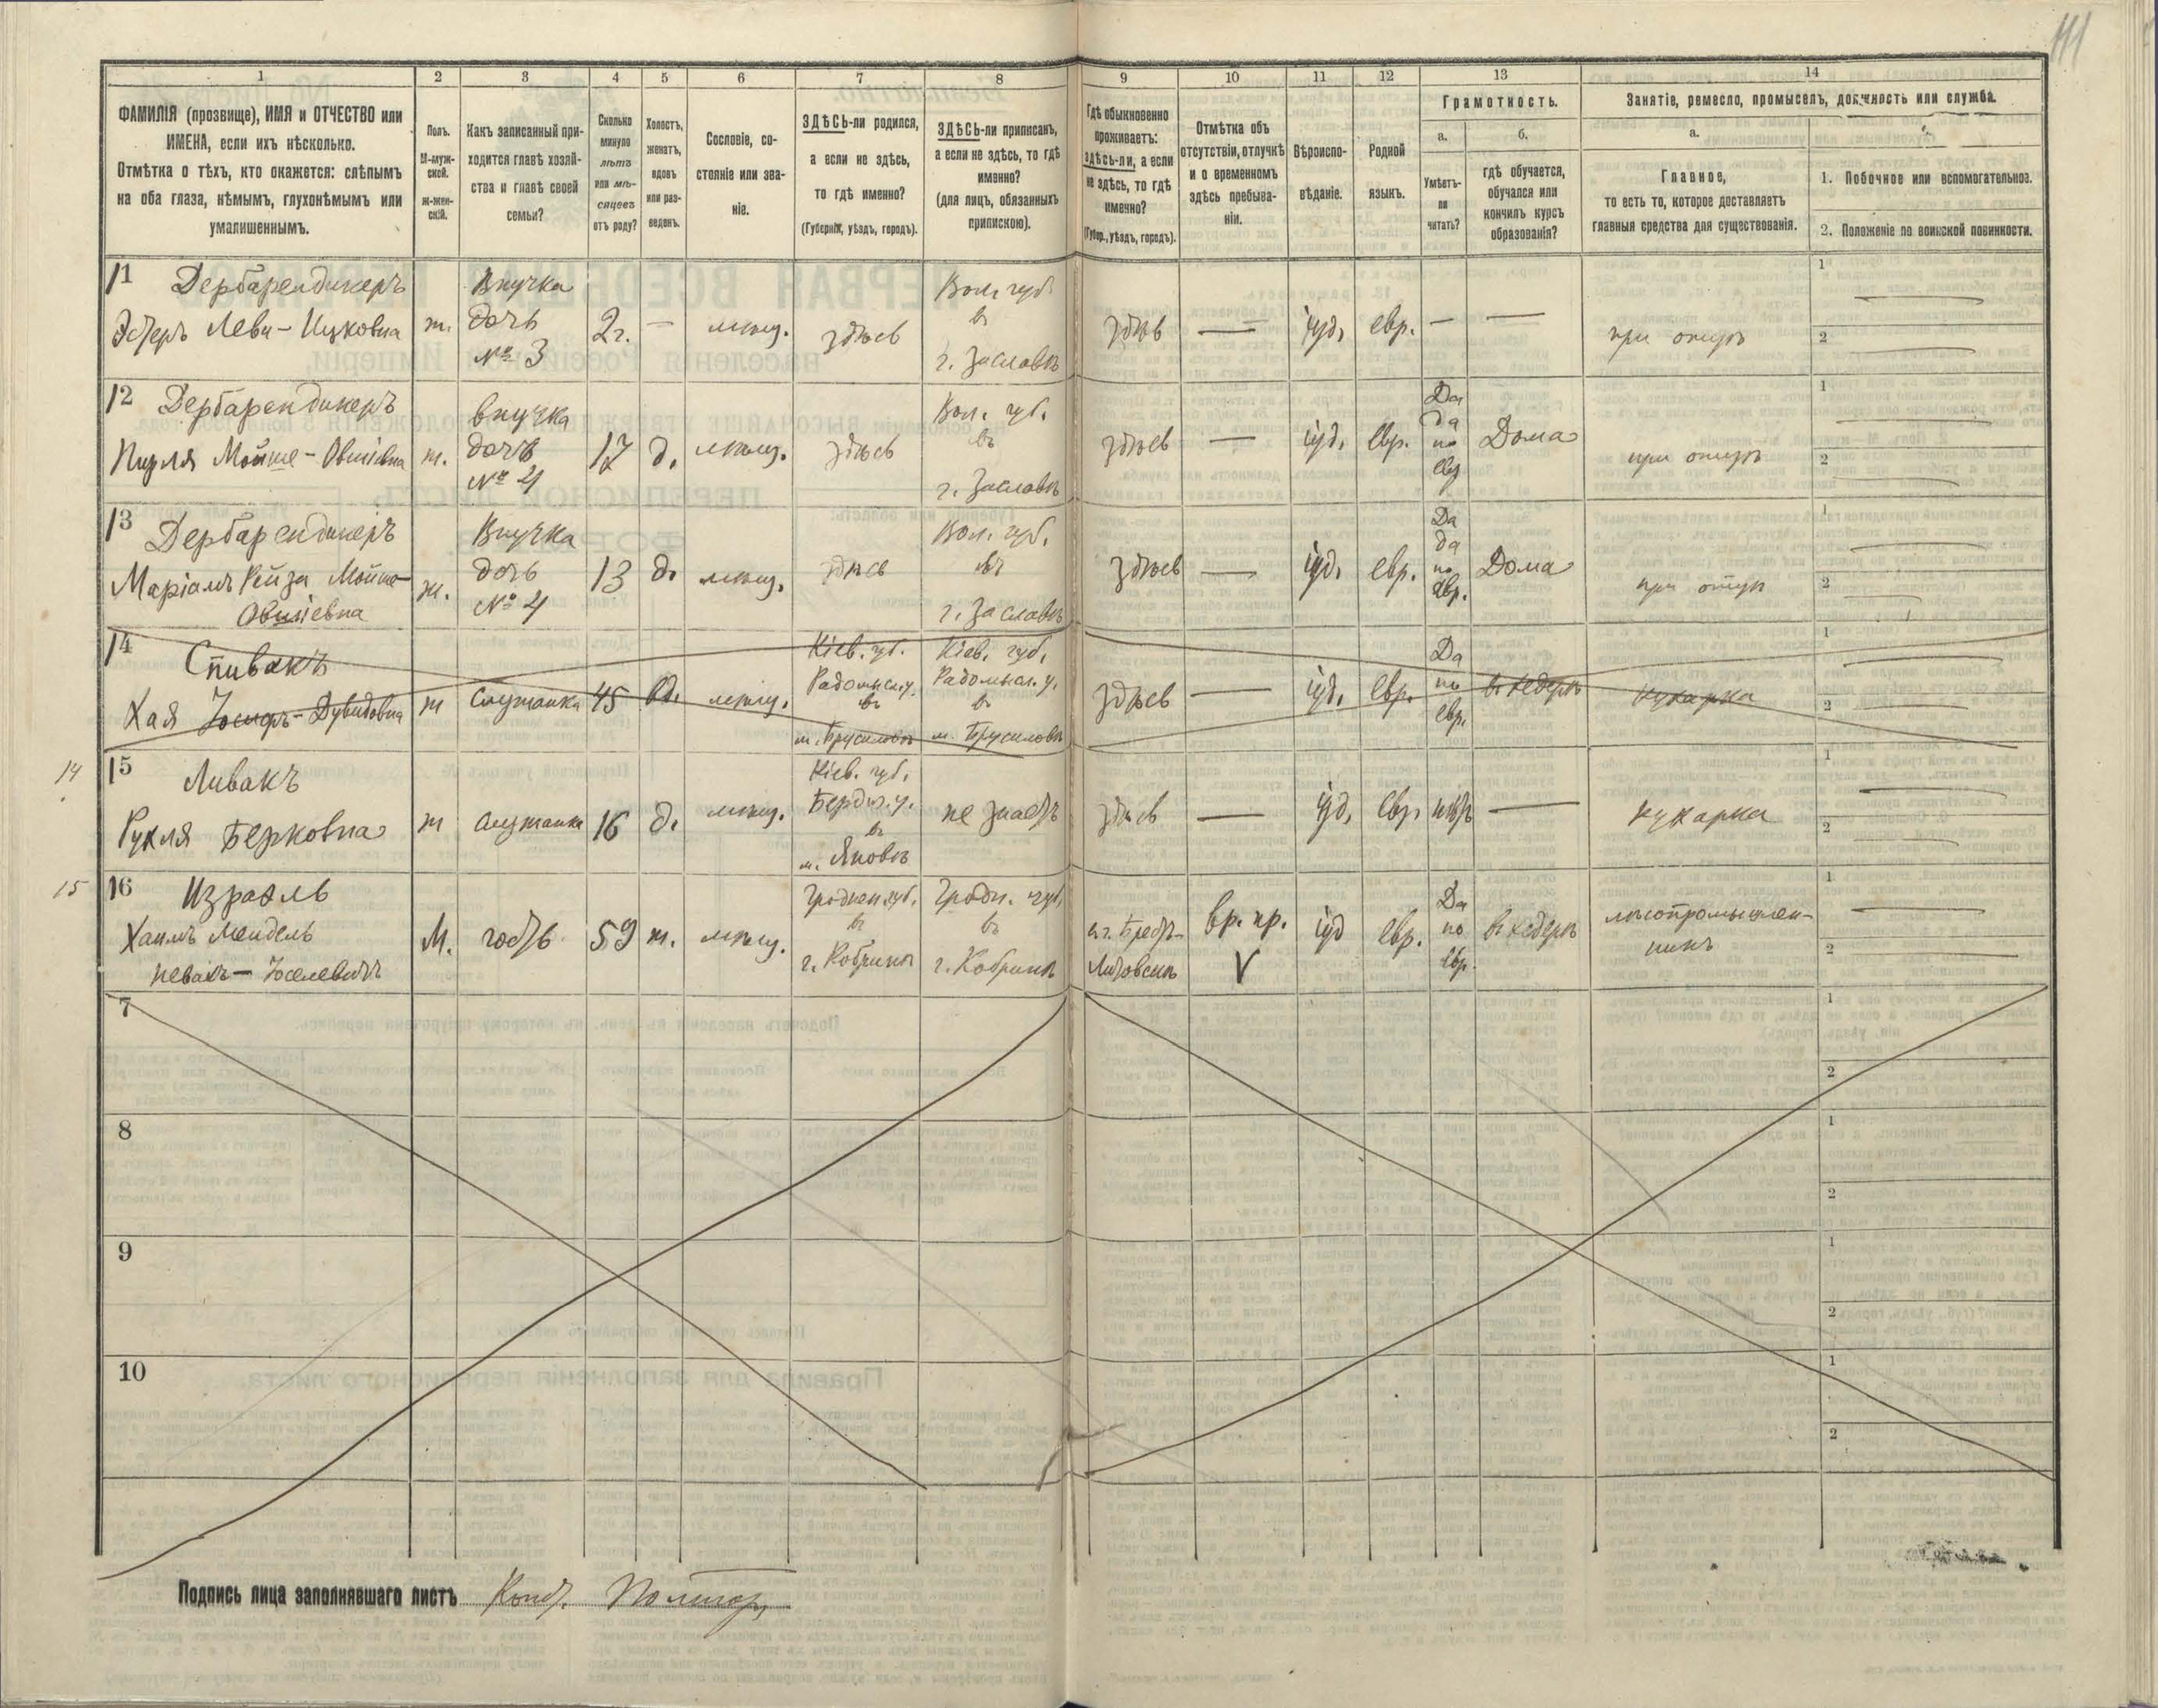 111
1
2
3
4
5
6
7
8
9
10
11
12
13
14
ФАМИЛІЯ (прозвище), ИМЯ и ОТЧЕСТВО или
ИМЕНА, если ихъ нѣсколько.
Отмѣтка о тѣхъ, кто окажется: слѣпымъ
на оба глаза, нѣмымъ, глухонѣмымъ или
умалишеннымъ.
Полъ.
М-муж-
ской.
Ж-жен-
скій.
Какъ записанный при-
ходится главѣ хозяй-
ства и главѣ своей
семьи?
Сколько
минуло
лѣтъ
или мѣ-
сяцевъ
отъ роду?
Холостъ,
женатъ,
вдовъ
или раз-
веденъ.
Сословіе, со-
стояніе или зва-
ніе.
ЗДѢСЬ-ли родился,
а если не здѣсь,
то гдѣ именно?
(Губернія, уѣздъ, городъ).
ЗДѢСЬ-ли приписанъ,
а если не здѣсь, то гдѣ
именно?
(для лицъ, обязанныхъ
припискою).
Гдѣ обыкновенно
проживаетъ:
здѣсь-ли, а если
не здѣсь, то гдѣ
именно?
(Губер., уѣздъ, городъ).
Отмѣтка объ
отсутствіи, отлучкѣ
и о временномъ
здѣсь пребыва-
ніи.
Вѣроиспо-
вѣданіе.
Родной
языкъ.
Грамотность.
а.
Умѣетъ-
ли
читать?
б.
гдѣ обучается,
обучался или
кончилъ курсъ
образованія?
Занятіе, ремесло, промыселъ, должность или служба.
а.
Главное,
то есть то, которое доставляетъ
главныя средства для существованія.
1. Побочное или вспомогательное.
2. Положеніе по воинской повинности.
11 Дербарендикеръ
Эстеръ Леви-Ицковна
ж.
Внучка
дочь
№ 3
2 г.
—
мѣщ.
здѣсь
Вол. губ.
въ
г. Заславѣ
здѣсь
—
іуд.
евр.
—
—
при отцѣ
1
2
12 Дербарендикеръ
Пирля Мойше-Овшіевна
ж.
внучка
дочь
№ 4
17
д.
мѣщ.
здѣсь
Вол. губ.
въ
г. Заславѣ
здѣсь
—
іуд.
евр.
Да
да
по
евр
Дома
при отцѣ
1
2
13 Дербарендикеръ
Маріамъ Рейза Мойше-
Овшіевна
ж.
Внучка
дочь
№ 4
13
д.
мѣщ.
здѣсь
Вол. губ.
въ
г. Заславѣ
здѣсь
—
іуд.
евр.
Да
да
по
евр.
Дома
при отцѣ
1
2
14 Спивакъ
Хая Іосифъ-Дувидовна
ж
служанка
45
вд.
мѣщ.
Кіев. губ.
Радомысл. у.
въ
м. Брусиловѣ
Кіев. губ.
Радомысл. у.
въ
м. Брусиловѣ
здѣсь
—
іуд.
евр.
Да
по
евр.
въ хедерѣ
кухарка
1
2
14
15 Ливакъ
Рухля Берковна
ж
служанка
16
д.
мѣщ.
Кіев. губ.
Бердич. у.
въ
м. Яновѣ
не знаетъ
здѣсь
—
іуд.
евр.
нѣтъ
—
кухарка
1
2
15
16 Израэль
Хаимъ Мендель
Іоселевичъ
М.
гость
59
ж.
мѣщ.
Гроднен. губ.
въ
г. Кобринѣ
Гродн. губ.
въ
г. Кобринѣ
въ г. Брестъ-
Литовскѣ
вр. пр.
V
іуд
евр.
Да
по
евр.
въ хедерѣ
лѣсопромышлен-
никъ
1
2
7
1
2
8
1
2
9
1
2
10
1
2
Подпись лица заполнявшаго листъ